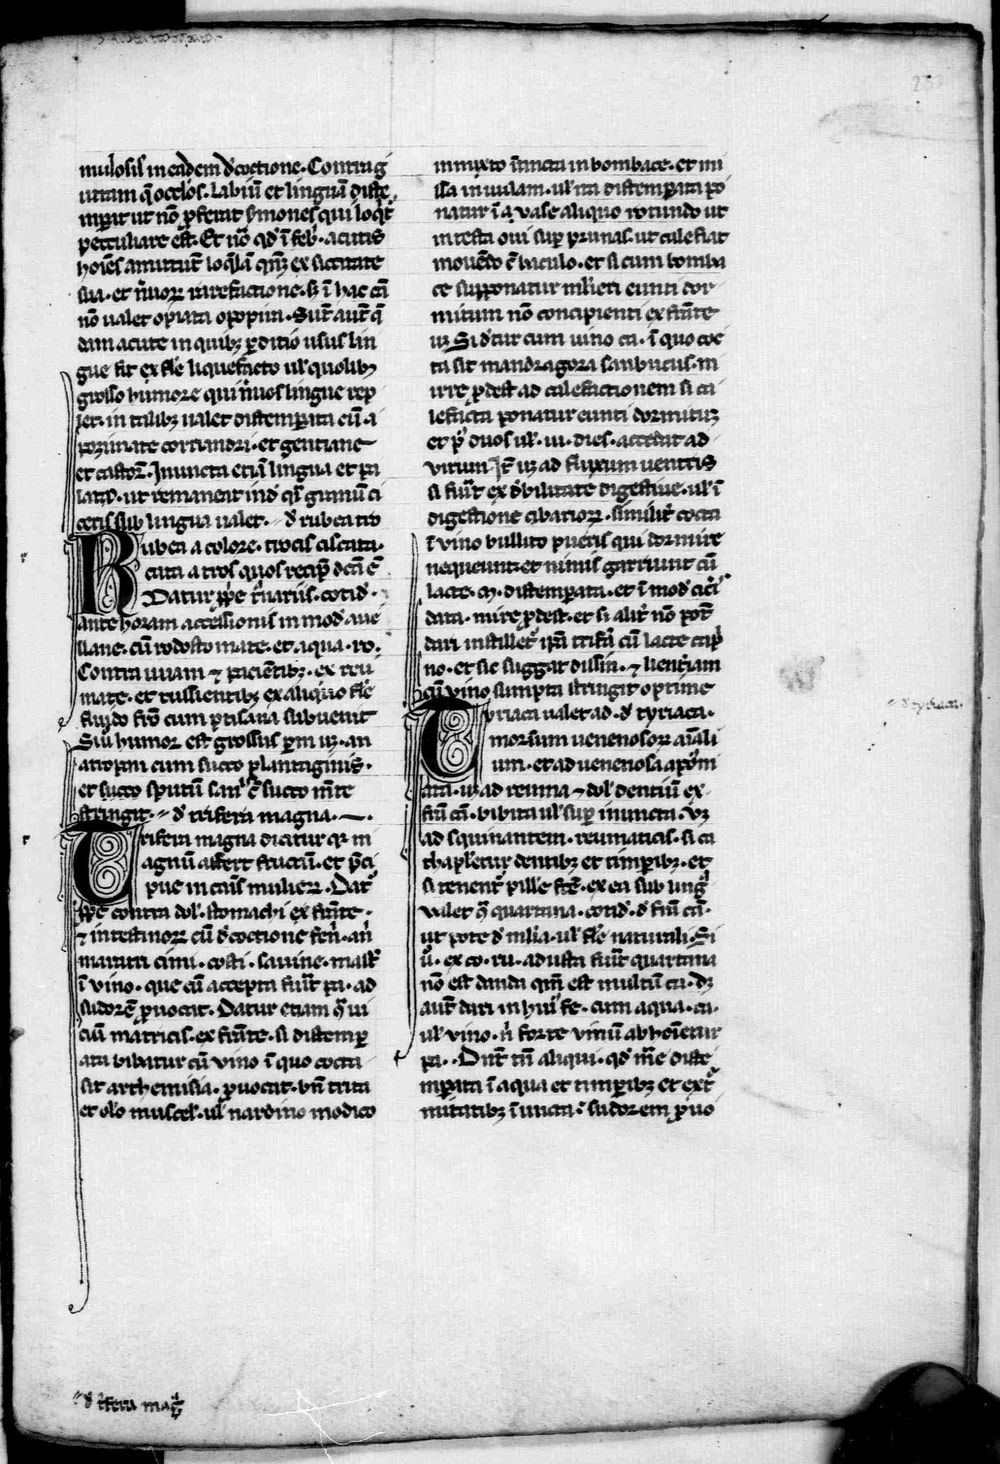 mulosis in eadem d'coctione. Contra g
uttam q̄ occlos. Labiū et linguā diste
mperat ut nō ꝓferat s̄mones qui loq̄t᷑
peculiare est. Et nō qd' ī feb'. acutis
hoīes amittūt loq̄lā qm̄ ex siccitate
sua. et n̄uoꝝ rarefactione. s; ī hac cā
nō ualet opiata opopira. Sūt aut̄ q̄
dam acute in quib; ꝑditio usus lin
gue fit ex fle liquefacto ul' quolib;
grosso humore qui n̄uos lingue rep
let. in talib; ualet distemꝑata cū a
rozimate coriandri. et gentiane
et castor̄. Inuncta etiā lingua et pa
lato. ut remaneat ind' q̄i granū ci
ceris sub lingua ualet. d' rubea tro
Rubea a colore. trocis ciscata.
cata a tros quos recip̄ dc̄a ē
Datur ꝓpe t'nariis. cotid'.
ante horam accessionis in mod' aue
llane. cū rodostomate. et aqua. ro.
Contra uuam ⁊ pacientib;. ex reu
mate. et tussientib; ex aliquo fle
fluido fr̄o cum ptisana subuenit
Si ū humor est grossus ꝑm u;. an
atropin cum succo plantaginis.
et succo sputū san' ē succo mīte
stringit. d' trifera magna.
Trifera magna dicitur qr m
agnū affert fructū. et p̄ci
pue in cāis mulieꝝ. Dat᷑
ꝓpe contra dol'. stomachi ex fr̄ite.
⁊ intestinoꝝ cū d'coctione fen̄. an̄
maratri cimi. costi. sauine. mast'
ī vino. que cū accepta fūit pa. ad
sudorē ꝓuocat. Datur etiam ꝯ̄ ui
ciū matricis. ex fr̄ite. si distemꝑ
ata bibatur cū vino ī quo cocta
sit arthemisia. ꝓuocat. bn̄ trita
et ol'o muscel'. ul' nardino modico
in mixto ūncta in bombace. et mi
ssa in uuluam. ul' ita distemꝑata po
natur ī a vase aliquo rotundo ut
in testa oui suꝑ prunas. ut calefiat
mouēdo c̄ baculo. et si cum bomba
ce supponatur ml'ieri eunti dor
mitum nō concipienti ex fr̄ite
u;. Si d'tur cum uino ca. ī quo coc
ta sit mandragora sanbucus. m
irre ꝓdest ad calefactionem si ca
lefacta ponatur eunti dormitu;
et ꝑ duos ul'. iii. dies. accedat ad
virum. It̄ u; ad fluxum uentris
si fūit ex d'bilitate digestiue. ul' ī
digestione cibarioꝝ. similit᷑ cocta
ī vino bullito pueris qui dormire
nequeunt. et nimis garriunt cū
lacte. m. distemꝑata. et ī mod' cic̄i
data. mire ꝓdest. et si alit᷑ nō pot̄
dari instillet᷑ ip̄a trifā cū lacte cap̄
no. et sic suggat dissin. ⁊ lienteriam
cū vino sumpta stringit optime
Tyriaca ualet ad. d' tyriaca.
morsum uenenosoꝝ aīali
um. et ad uenenosa apoīm
ata. u; ad reuma ⁊ dol' dentiū ex
fr̄ū cā. bibita ul' suꝑ inuncta. V;
ad squinantem. reumaticis. si ca
thapletur dentib; et timꝑib;. et
si tenent᷑ pille fcē. ex ea sub ling᷑
valet ꝯ̄ quartana. cotid'. d' frīa cā.
ut pote d' mlīa. ul' fle naturali. Si
ū. ex co. ru. adusta fūit quartana
nō est danda qm̄ est multū ca. d;
aut̄ dari in hui' fe. cum aqua. ca.
ul' vino. n̄ forte vinū abhoīetur
pa. Dnt̄ tn̄ aliqui. qd' m̄e diste
mꝑata ī aqua et timꝑib; et ext᷑
mitatib; īuncta. sudorem ꝓuo
d' tyriaca.
d' t̄fera mag